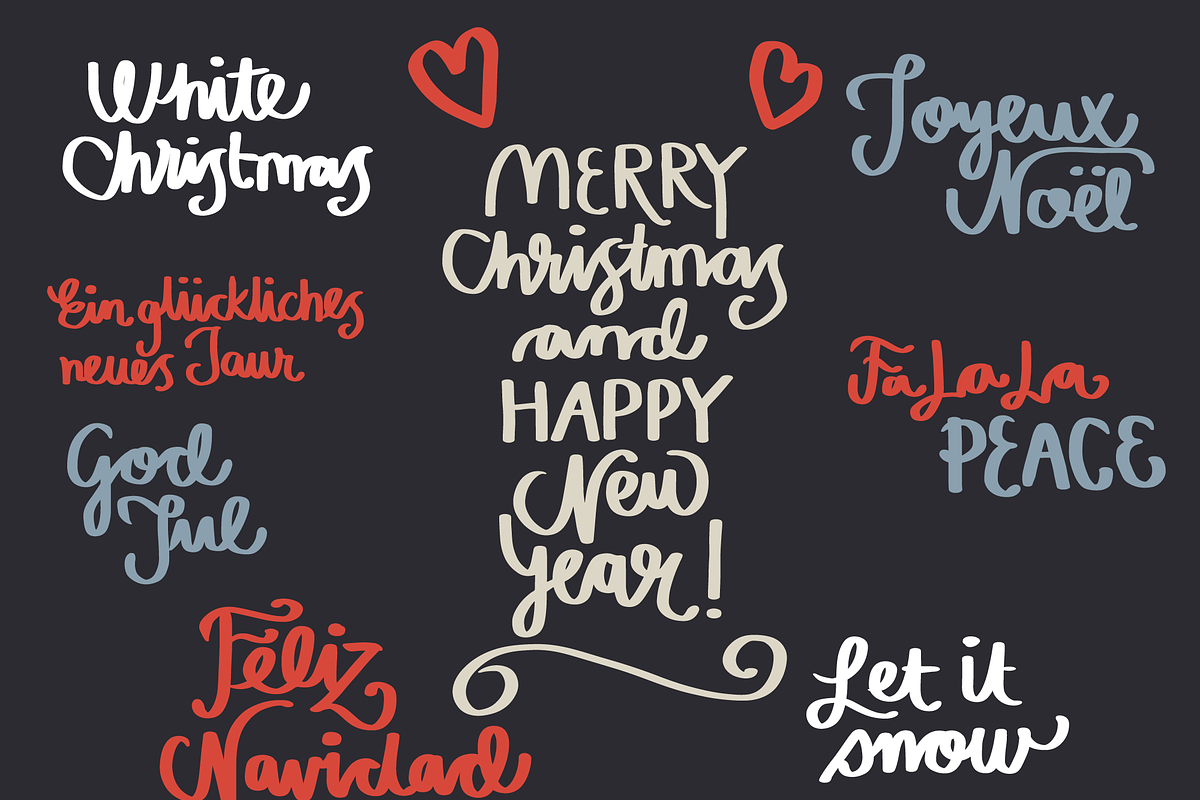 White
Christmas
Ein glückliches
neues Jaur
God
Jul
Feliz
Navidad
MERRY
Christmas
and
HAPPY
New
Year!
Joyeux
Noël
Fa La La
PEACE
Let it
snow